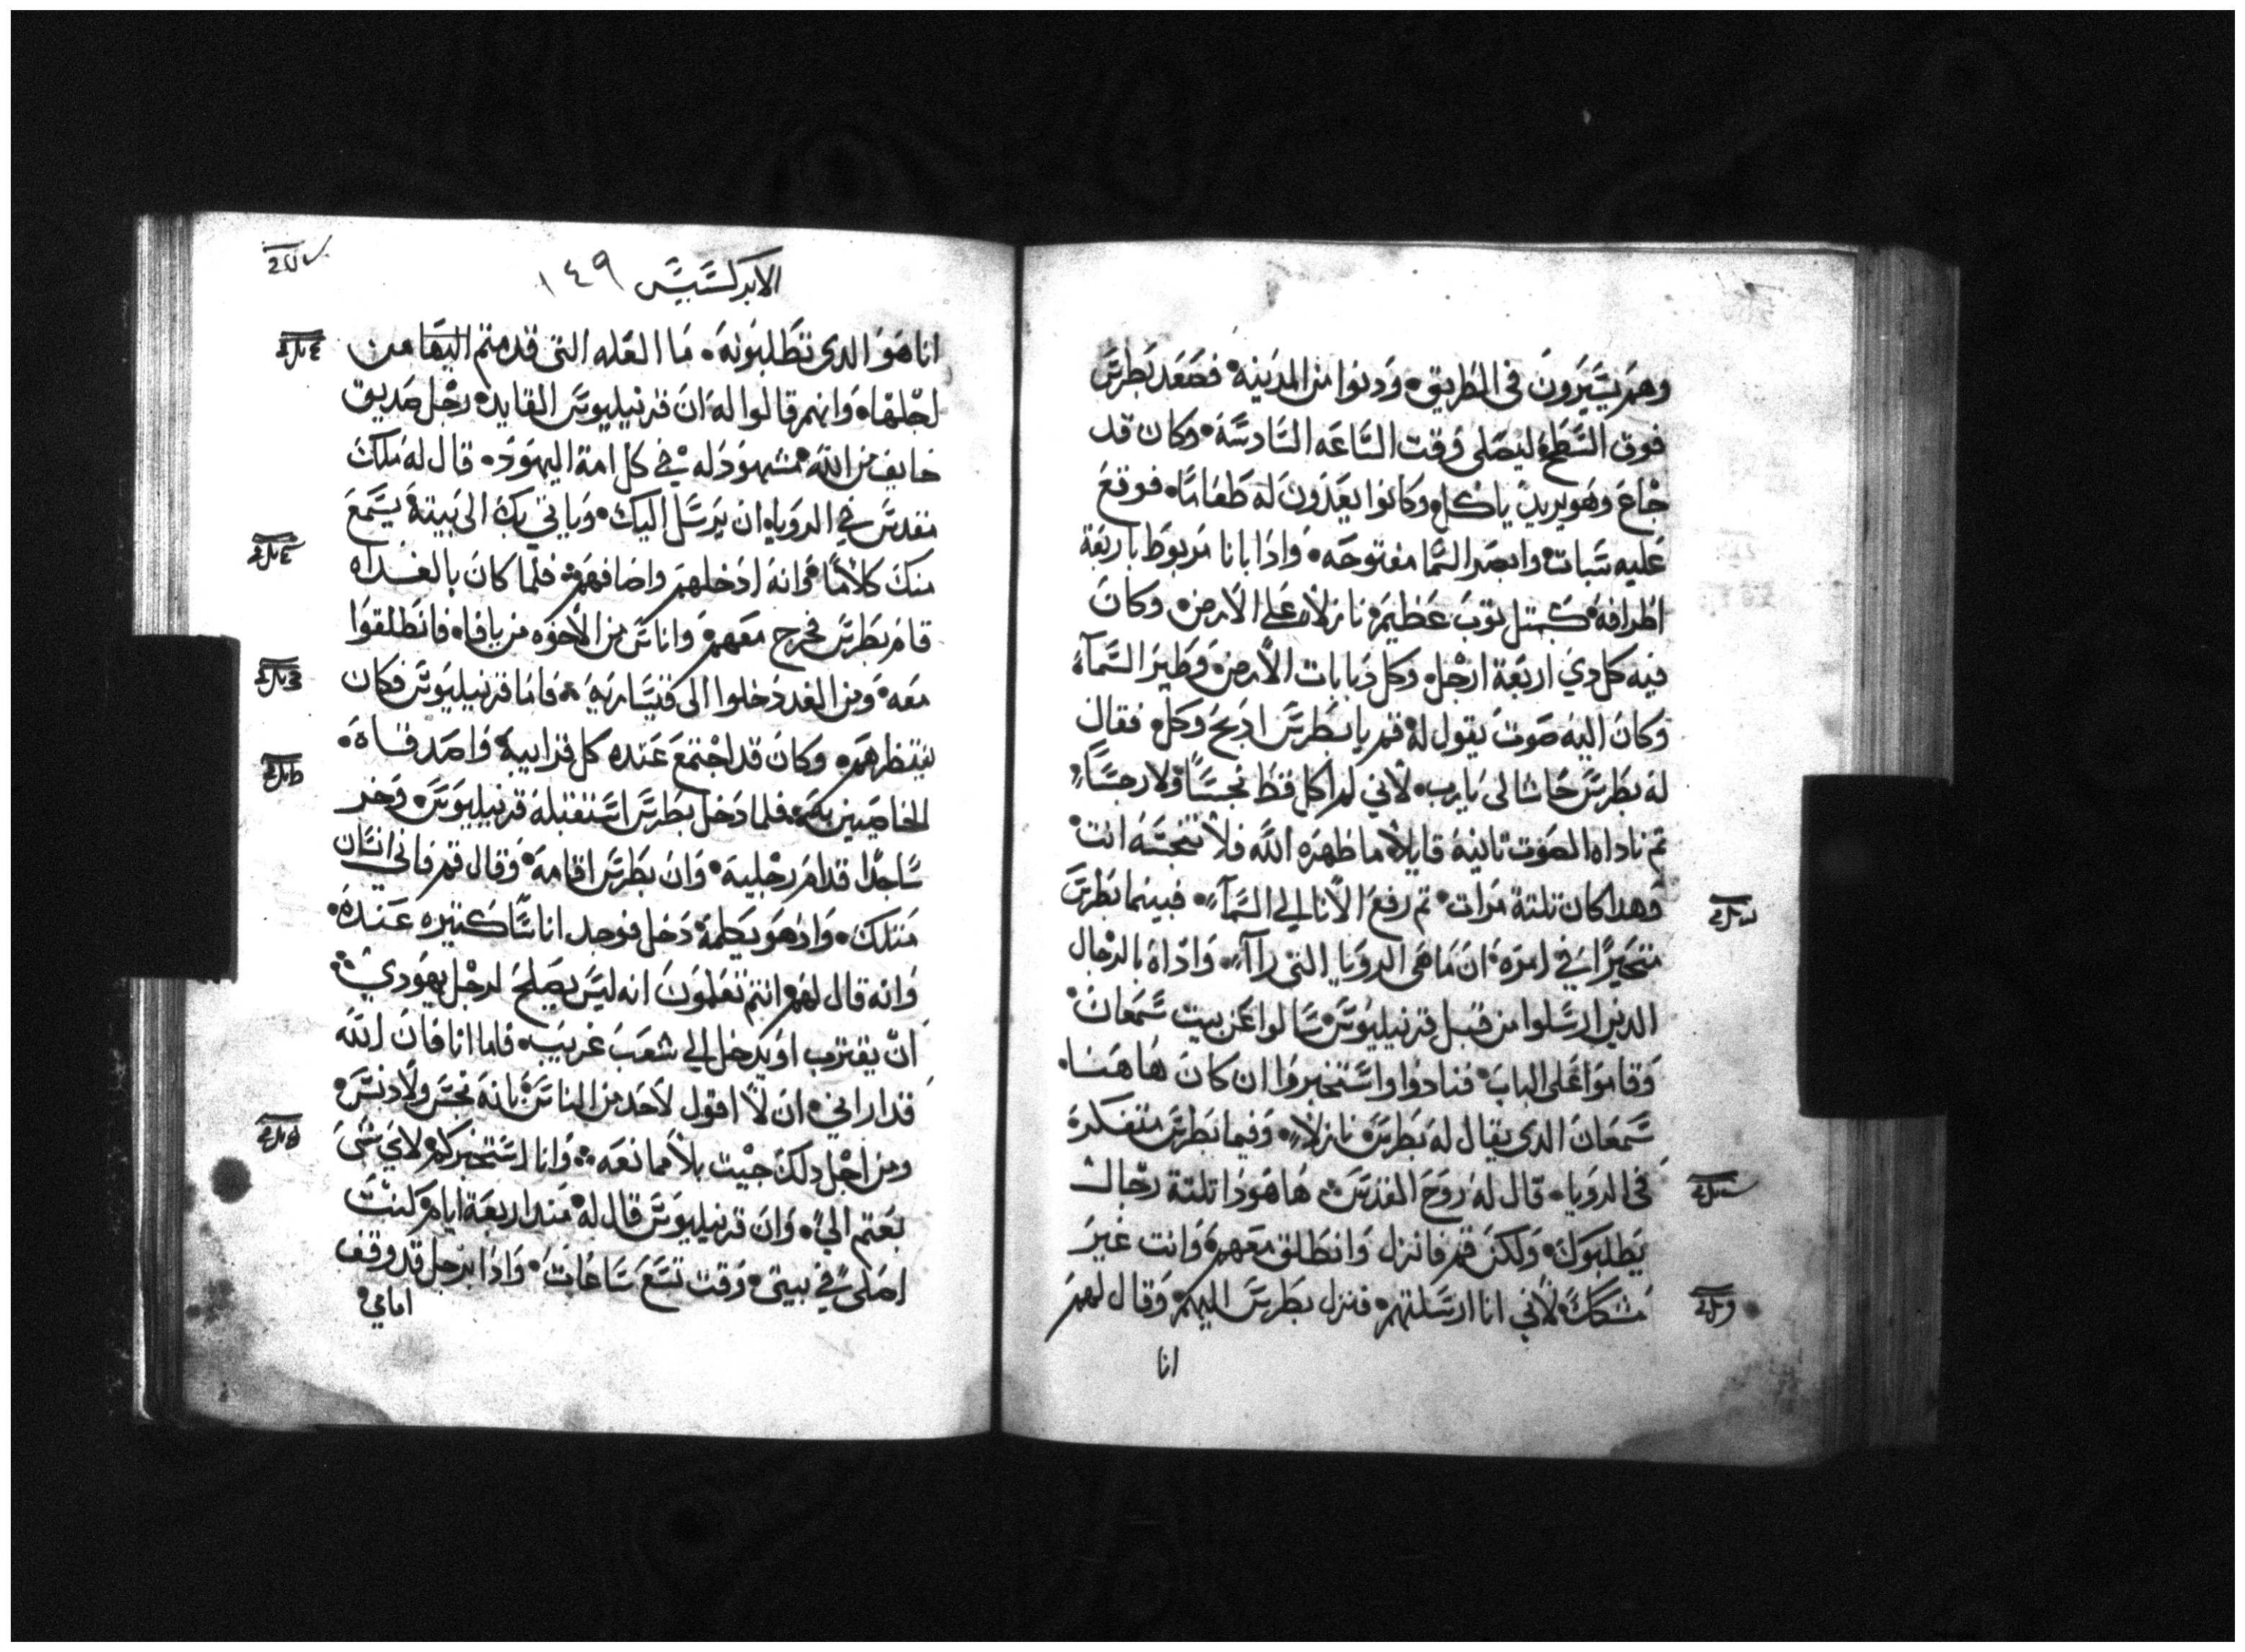 وهم يسيرون في الطريق، ودنوا من المدينة، فصعد بطرس
فوق السطح ليصلي وقت الساعه السادسة، وكان قد
جاع وهو يريد ياكل وكانوا يعدون له طعاما، فوقع
عليه سبات، وابصر السما مفتوحه، واذا بانا مربوط باربعة
اطرافه كمتل توب عظيم نازلا على الارض، وكان
فيه كل دي اربعة ارجل، وكل دبابات الارض، وطير السمآء
وكان اليه صوت يقول له قم يا بطرس ادبح وكل، فقال
له بطرس حاشا لي يارب، لاني لم اكل قط نجسا ولا رجسا،
تم ناداه الصوت تانية قايلا، ما طهره الله فلا تنجسه انت،
وهدا كان تلتة مرات، تم رفع الانا الي السمآء، فبينما بطرس
متحيرا في امره، ان ما هى الرويا التى راآ، واداه بالرجال
الدين ارسلوا من قبل قرنيليوس، سالوا عن بيت سمعان،
وقاموا على الباب، فنادوا واستخبروا ان كان هاهنا،
سمعان الدى يقال له بطرس نازلا، وفيما بطرس متفكرة
في الرويا، قال له روح القدس، هاهودا تلتة رجال
يطلبوك، ولكن قم فانزل وانطلق معهم، وانت غير
مشكك، لاني انا ارسلتهم، فنزل بطرس اليهم، وقال لهم
انا
الابركسيس ١٤٩
انا هو الدى تطلبونه، ما العله التى قدمتم اليها من
اجلها، وانهم قالوا له، ان قرنيليوس القايد، رجل صديق
خايف من الله، مشهود له في كل امة اليهود، قال له ملاك
مقدس في الرويا، ان يرسل اليك، وياتي بك الى بيته يسمع
منك كلاما، وانه ادخلهم واضافهم، فلما كان بالغداه
قام بطرس فخرج معهم، واناس من الاخوه من يافا، فانطلقوا
معه، ومن الغد دخلوا الى قيسارية، فاما قرنيليوس فكان
ينتظرهم، وكان قد اجتمع عنده كل قرايبه، واصدقاه،
الخاصين به، فلما دخل بطرس استقبله قرنيليوس، وخر
ساجدا قدام رجليه، وان بطرس اقامه، وقال قم فاني انسان
متلك، واد هو يكلمه دخل فوجد اناسا كتيره عنده،
وانه قال لهم، انتم تعلمون انه ليس يصلح لرجل يهودي،
ان يقترب او يدخل الي شعب غريب، فاما انا فان الله
قد اراني، ان لا اقول لاحد من الناس، بانه نجس ولا دنس،
ومن اجل دلك جيت بلا ممانعه، وانا استخبركم لاي شى
بعتم الي، وان قرنيليوس قال له، مند اربعة ايام كنت
اصلي في بيتي، وقت تسع ساعات، واذا برجل قد وقف
امامي،